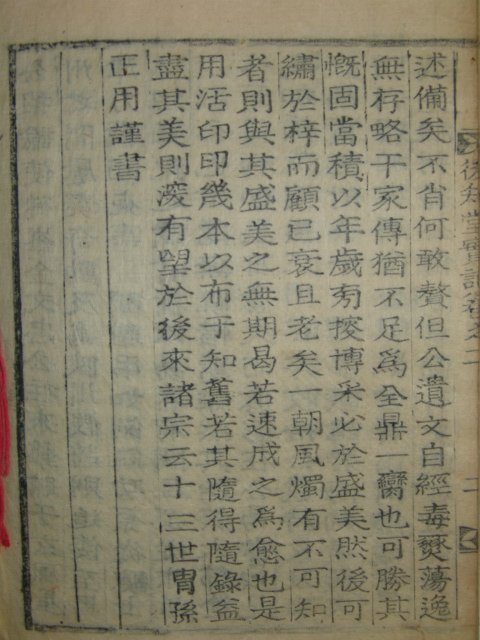 述備矣不肖何敢贅但公遺文自經毒燹蕩逸
無存略干家傳猶不足爲全鼎一臠也可勝其
慨固當積以年歲旁搜博采必於盛美然後可
繡於梓而顧已衰且老矣一朝風燭有不可知
者則與其盛美之無期曷若速成之爲愈也是
用活印印幾本以布于知舊若其隨得隨錄益
盡其美則深有望於後來諸宗云十三世胄孫
正用謹書
知堂實記卷之二
二